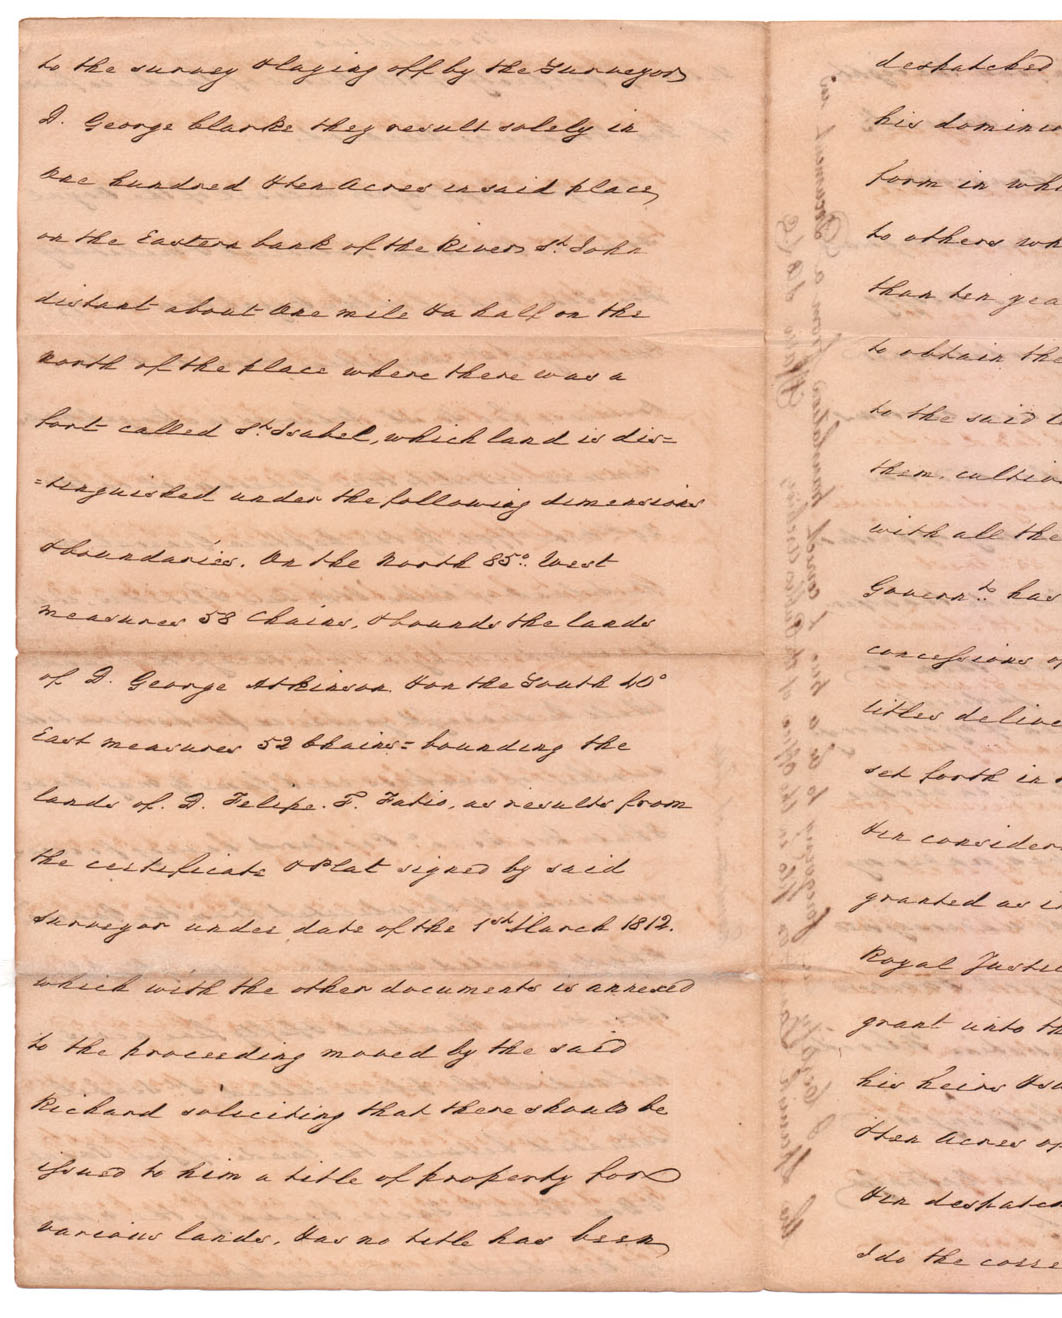 to the survey & laying off by the Surveyor
D. George Clarke they result solely in
One hundred & ten Acres in said place,
on the Eastern bank of the River St. John
distant about One mile & a half on the
North of the place where there was a
Fort called St. Isabel, which land is dis=
=tinguished under the following dimensions
& boundaries. On the North 85° West
measures 58 Chains, & bounds the lands
of D. George Atkinson & on the South 40°
East measures 52 Chains= bounding the
lands of D. Felipe. F. Fatio, as results from
the certificate & Plat signed by said
surveyor under date of the 1st March 1812.
which with the other documents is annexed
to the proceeding moved by the said
Richard soliciting that there should be
issued to him a title of property for
various lands. & as no title has been
despatched
his domini
form in whi
to others wh
than ten yea
to obtain the
to the said
them, cultiv
with all the
Governt. has
concessions of
titles delive
set forth in
& in consider
granted as i
Royal Justi
grant unto th
his heirs & su
& ten Acres of
& in despatc
I do the